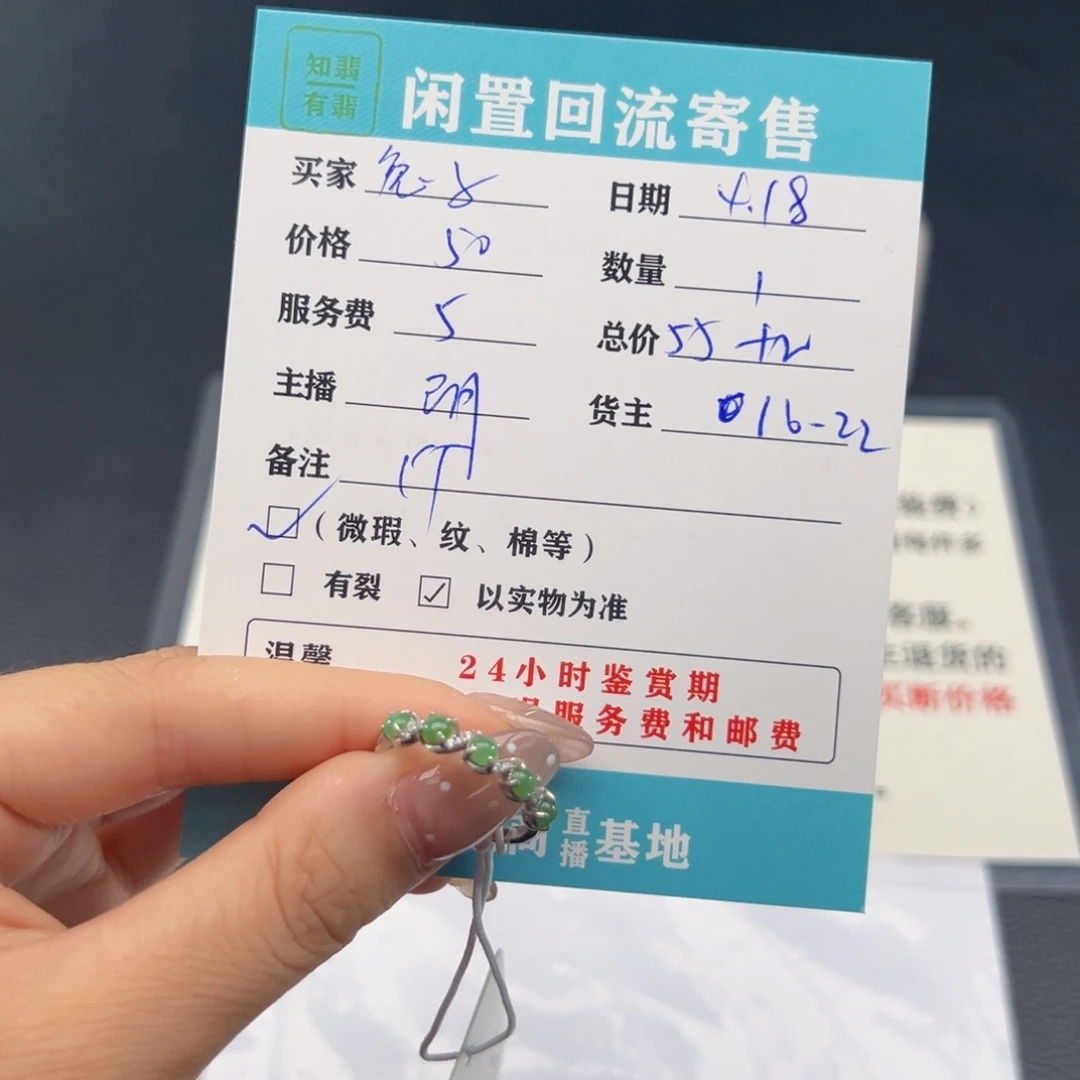 知翡
有翡
闲置回流寄售
买家 日期 4.18
价格 50 数量 1
服务费 5 总价 55
主播 明 货主 016-22
备注
（微瑕、纹、棉等）
有裂 ☑ 以实物为准
温馨
24小时鉴赏期
服务费和邮费
直播基地
客服。
买断价格